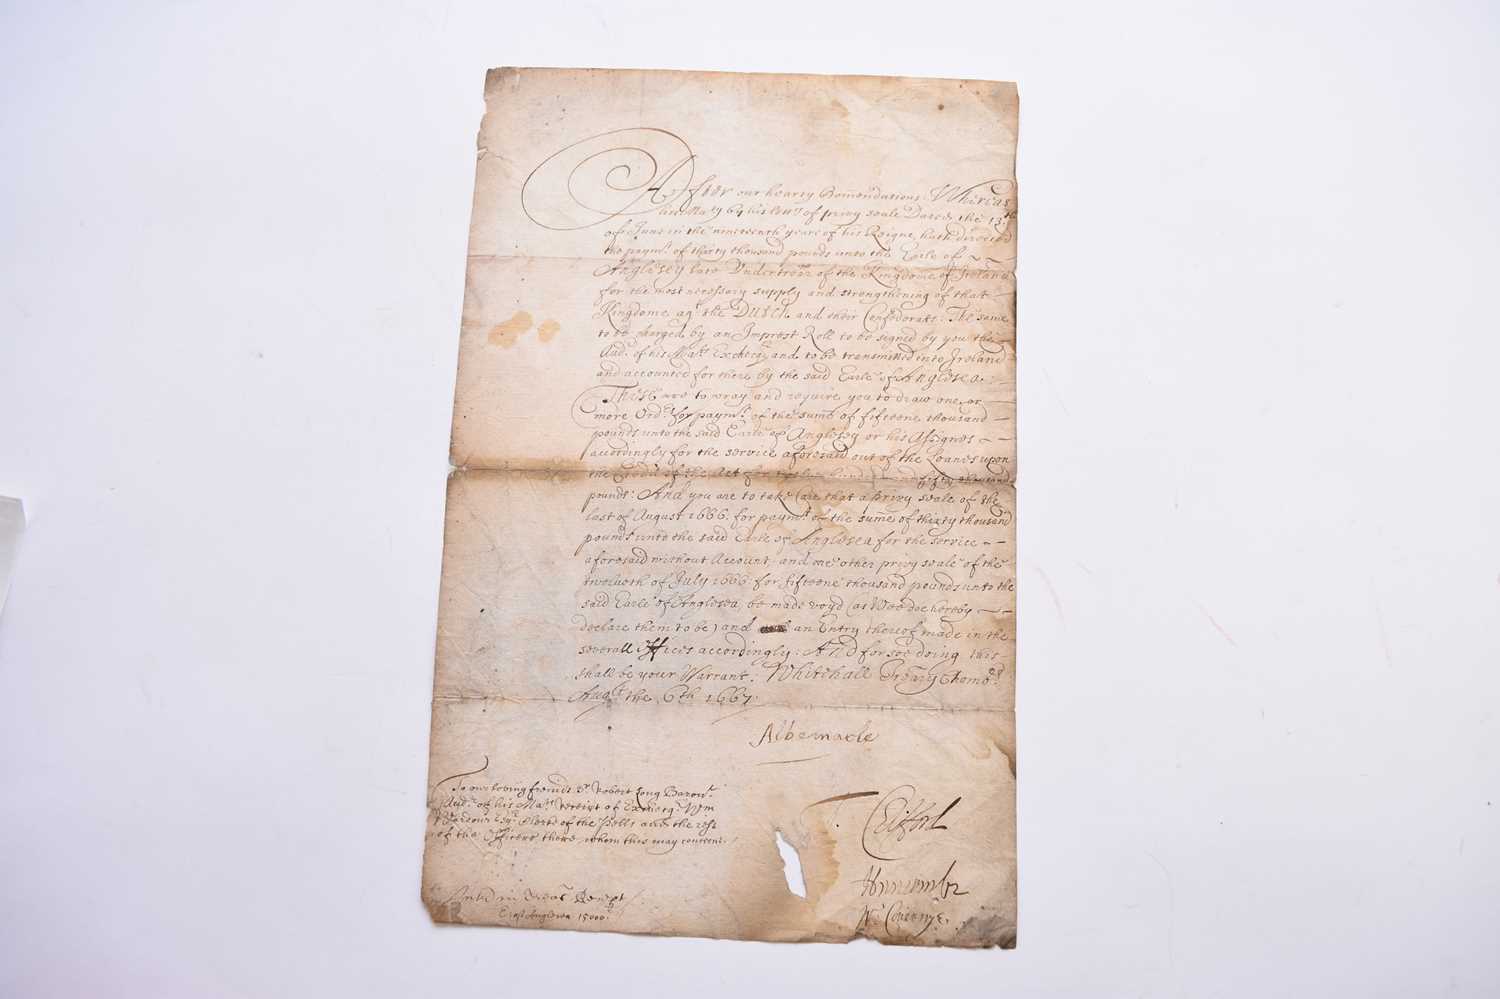 After our hearty Comendations. Whereas
his Maty by his Lres of privy seale Dated the 13th
of June in the nineteenth yeare of his Reigne, hath directed
the paymt of thirty thousand pounds unto the Earle of
Anglesey late Undertrer of the Kingdome of Ireland
for the most necessary supply and strengthening of that
Kingdome agt the Dutch and their Confederats: The same
to be charged by an Imprest Roll to be signed by you the
Audr of his Mats Exchecqr and to be transmitted into Ireland
and accounted for there by the said Earle of Anglesea.
These are to pray and require you to draw one or
more Ordrs for paymt of the sume of fifteene thousand
pounds unto the said Earle of Anglesey or his Assignes
accordingly for the service aforesaid out of the Loanes upon
the Credit of the Act for twelve hundred and fifty thousand
pounds: And you are to take Care that a privy seale of the
last of August 1666. for paymt of the sume of thirty thousand
pounds unto the said Earle of Anglesea for the service
aforesaid without Account, and one other privy seale of the
twelveth of July 1666. for fifteene thousand pounds unto the
said Earle of Anglesea, be made voyd (as Wee doe hereby
declare them to be) and an Entry thereof made in the
severall Offices accordingly: And for soe doing this
shall be your Warrant. Whitehall Treãry Chambrs
Augt the 6th 1667.
Albemarle
To our loving freinds Sr Robert Long Baront
Audr of his Mats receipt of Exchecqr Wm
Wardour Esqr Clerke of the Pells and the rest
of the Officers there, whom this may concerne.
T. Clifford
W: Coventrye.
Earl Anglesea 15000